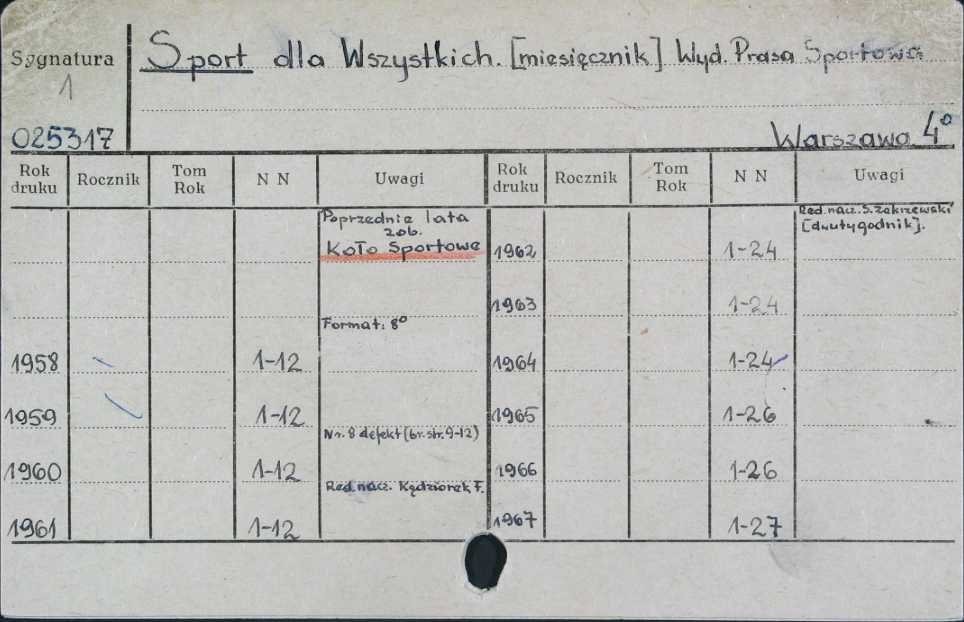 Sygnatura
1
025317
Sport dla Wszystkich. [miesięcznik] Wyd. Prasa Sportowa
Warszawa 4°
Rok druku Rocznik Tom Rok N N Uwagi Rok druku Rocznik Tom Rok N N Uwagi
Poprzednie lata
zob.
Koło Sportowe
Format: 8°
1958 1-12
1959 1-12
Nr. 8 defekt (br. str. 9-12)
1960 1-12
Red. nacz. Kędziorek F.
1961 1-12
Red. nacz. S. Zakrzewski
[dwutygodnik].
1962 1-24
1963 1-24
1964 1-24
1965 1-26
1966 1-26
1967 1-27